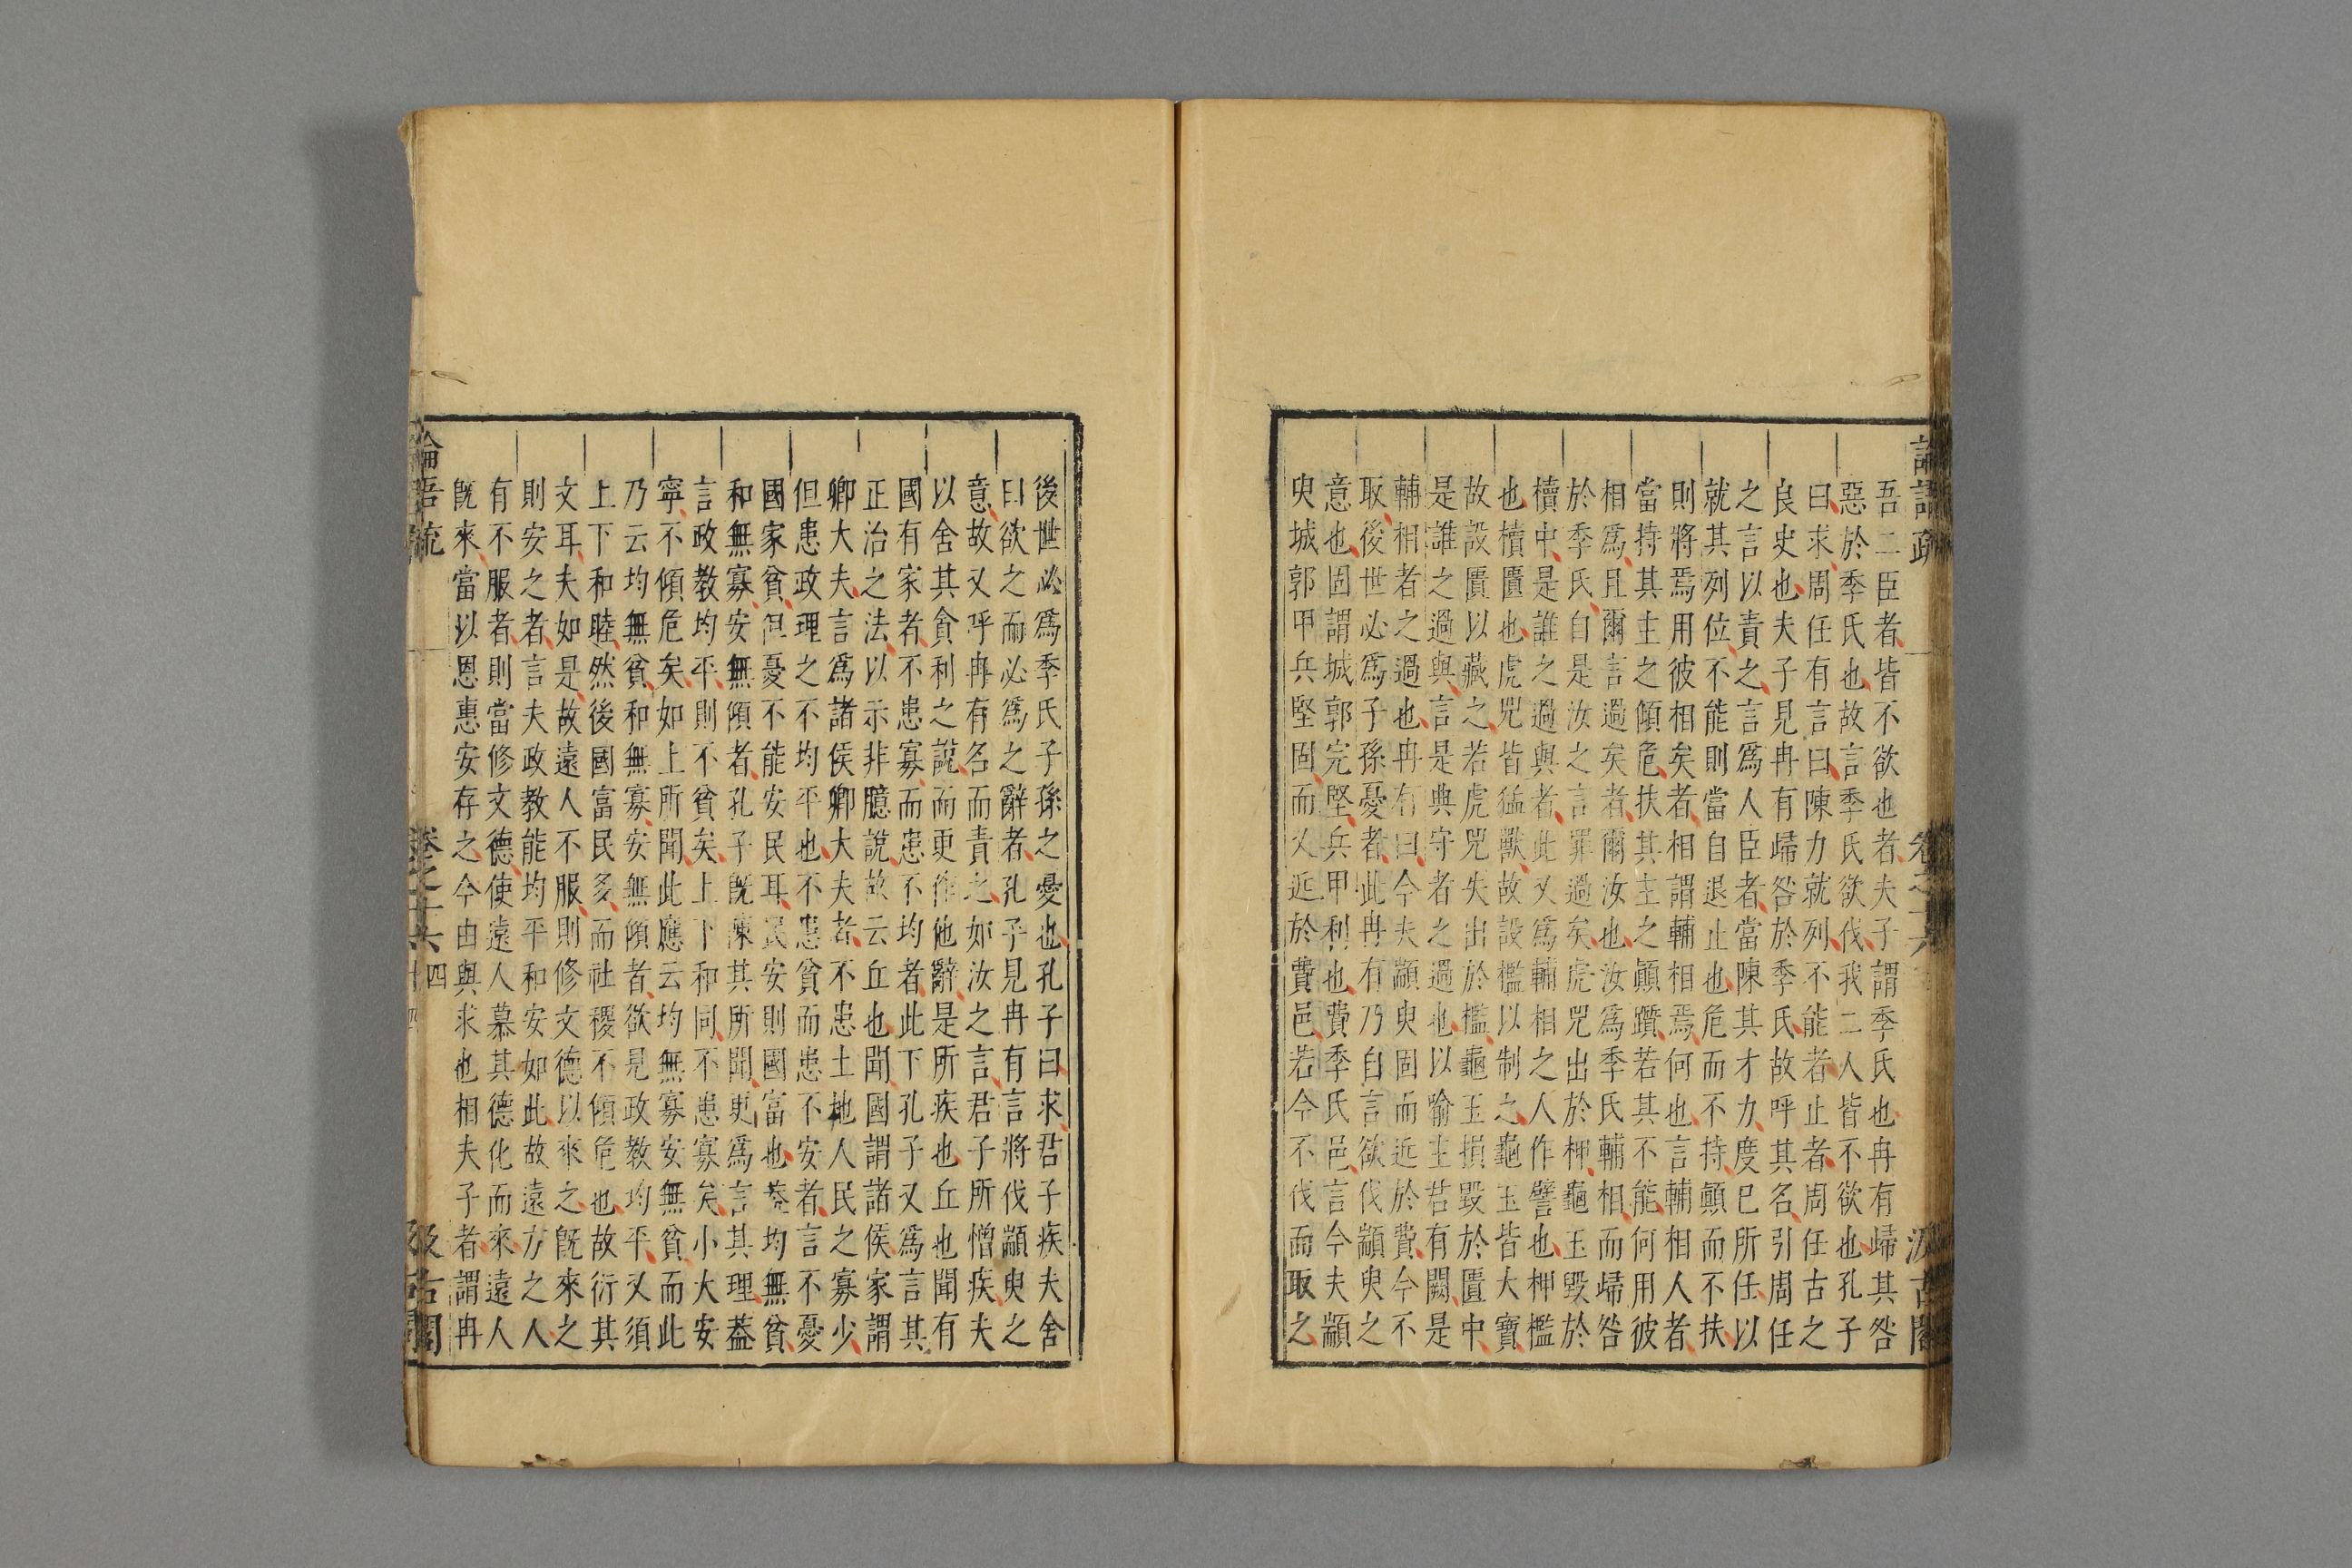 吾二臣者皆不欲也者夫子謂季氏也冉有歸其咎
惡於季氏也故言季氏欲伐我二人皆不欲也孔子
曰求周任有言曰陳力就列不能者止者周任古之
良史也夫子見冉有歸咎於季氏故呼其名引周任
之言以責之言爲人臣者當陳其才力度已所任以
就其列位不能則當自退止也危而不持顛而不扶
則將焉用彼相矣者相謂輔相焉何也言輔相人者
當持其主之傾危扶其主之顛躓若其不能何用彼
相爲且爾言過矣者爾汝也汝爲季氏輔相而歸咎
於季氏自是汝之言罪過矣虎兕出於柙龜玉毀於
櫝中是誰之過與者此又爲輔相之人作譬也柙檻
也櫝匱也虎兕皆猛獸故設檻以制之龜玉皆大寶
故設匱以藏之若虎兕失出於檻龜玉損毀於匱中
是誰之過與言是典守者之過也以喻主君有闕是
輔相者之過也冉有曰今夫顓臾固而近於費今不
取後世必爲子孫憂者此冉有乃自言欲伐顓臾之
意也固謂城郭完堅兵甲利也費季氏邑言今夫顓
臾城郭甲兵堅固而又近於費邑若今不伐而取之
論語疏
卷之十六
汲古閣
後世必爲季氏子孫之憂也孔子曰求君子疾夫舍
曰欲之而必爲之辭者孔子見冉有言將伐顓臾之
意故又呼冉有名而責之如汝之言君子所憎疾夫
以舍其貪利之說而更作他辭是所疾也丘也聞有
國有家者不患寡而患不均者此下孔子又爲言其
正治之法以示非臆說故云丘也聞國謂諸侯家謂
卿大夫言爲諸侯卿大夫者不患土地人民之寡少
但患政理之不均平也不患貧而患不安者言不憂
國家貧但憂不能安民耳民安則國富也葢均無貧
和無寡安無傾者孔子旣陳其所聞更爲言其理葢
言政教均平則不貧矣上下和同不患寡矣小大安
寧不傾危矣如上所聞此應云均無寡安無貧而此
乃云均無貧和無寡安無傾者欲見政教均平又須
上下和睦然後國富民多而社稷不傾危也故衍其
文耳夫如是故遠人不服則修文德以來之旣來之
則安之者言夫政教能均平和安如此故遠方之人
有不服者則當修文德使遠人慕其德化而來遠人
旣來當以恩惠安存之今由與求也相夫子者謂冉
論語疏
卷之十六
四
汲古閣